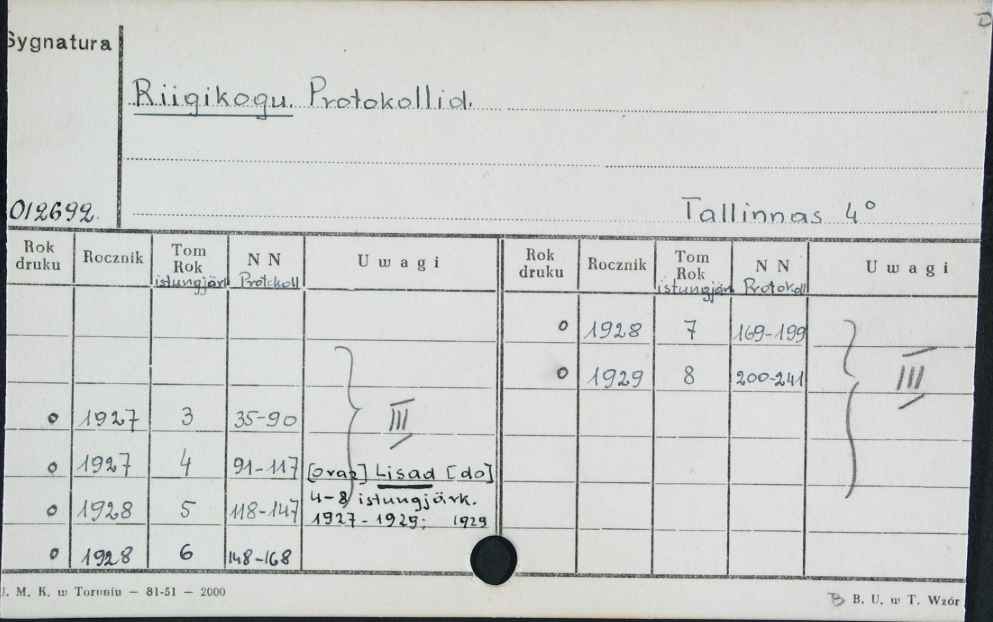 Sygnatura
Riigikogu. Protokollid.
012692.
Tallinnas 4°
Rok druku Rocznik Tom Rok istungjärk N N Protokoll Uwagi
Rok druku Rocznik Tom Rok istungjärk N N Protokoll Uwagi
o 1928 7 169-199
o 1929 8 200-241
III
o 1927 3 35-90
III
o 1927 4 91-117 [oraz] Lisad [do]
4-8 istungjärk.
o 1928 5 118-147
1927-1929; 1929
o 1928 6 148-168
J. M. K. w Toruniu — 81-51 — 2000
B. U. w T. Wzór